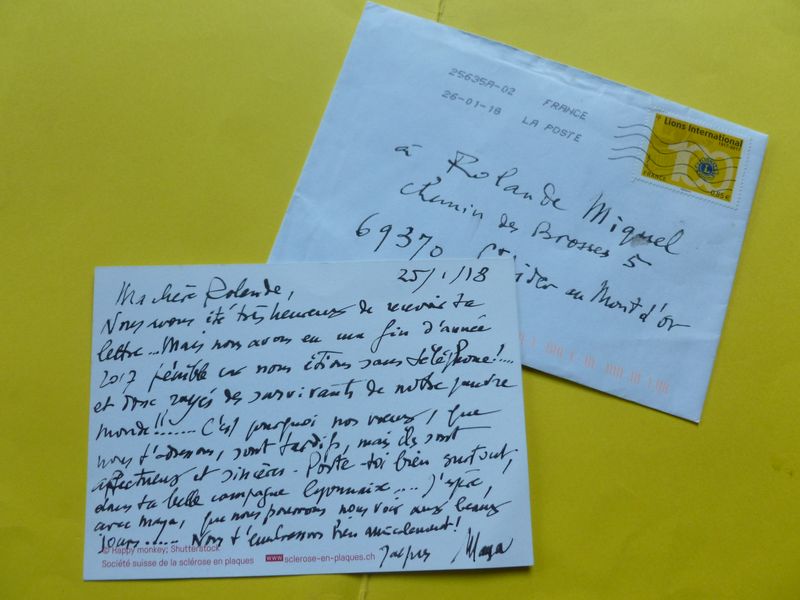 25635A-02 FRANCE
26-01-18 LA POSTE
Lions International
1917-2017
100
FRANCE 0,95€
à Rolande Miquel
Chemin des Brosses 5
69370 St Didier au Mont d'or
25/1/18
Ma chère Rolande,
Nous avons été très heureux de recevoir ta
lettre... Mais nous avons eu une fin d'année
2017 pénible car nous étions sans téléphone!....
et donc rayés des survivants de notre pauvre
monde!!....... C'est pourquoi nos vœux, que
nous t'adressons, sont tardifs, mais ils sont
affectueux et sincères. Porte-toi bien surtout,
dans ta belle campagne lyonnaise.... J'espère,
avec Maya, que nous pourrons nous voir aux beaux
jours...... Nous t'embrassons bien amicalement!
Jacques Maya
© Happy monkey; Shutterstock
Société suisse de la sclérose en plaques www.sclerose-en-plaques.ch